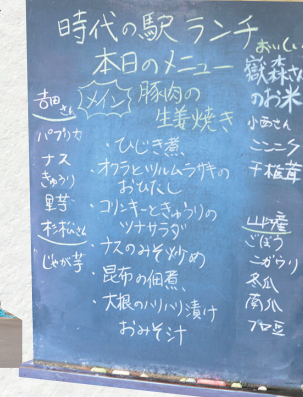 時代の駅 ランチ
本日のメニュー
メイン 豚肉の
生姜焼き
・ひじき煮
・オクラとツルムラサキの
おひたし
・コリンキーときゅうりの
ツナサラダ
・ナスのみそ炒め
・昆布の佃煮
・大根のハリハリ漬け
おみそ汁
吉田さん
パプリカ
ナス
きゅうり
里芋
杉松さん
じゃが芋
おいしい
嶽森さん
のお米
小西さん
ニンニク
干椎茸
ごぼう
冬瓜
南瓜